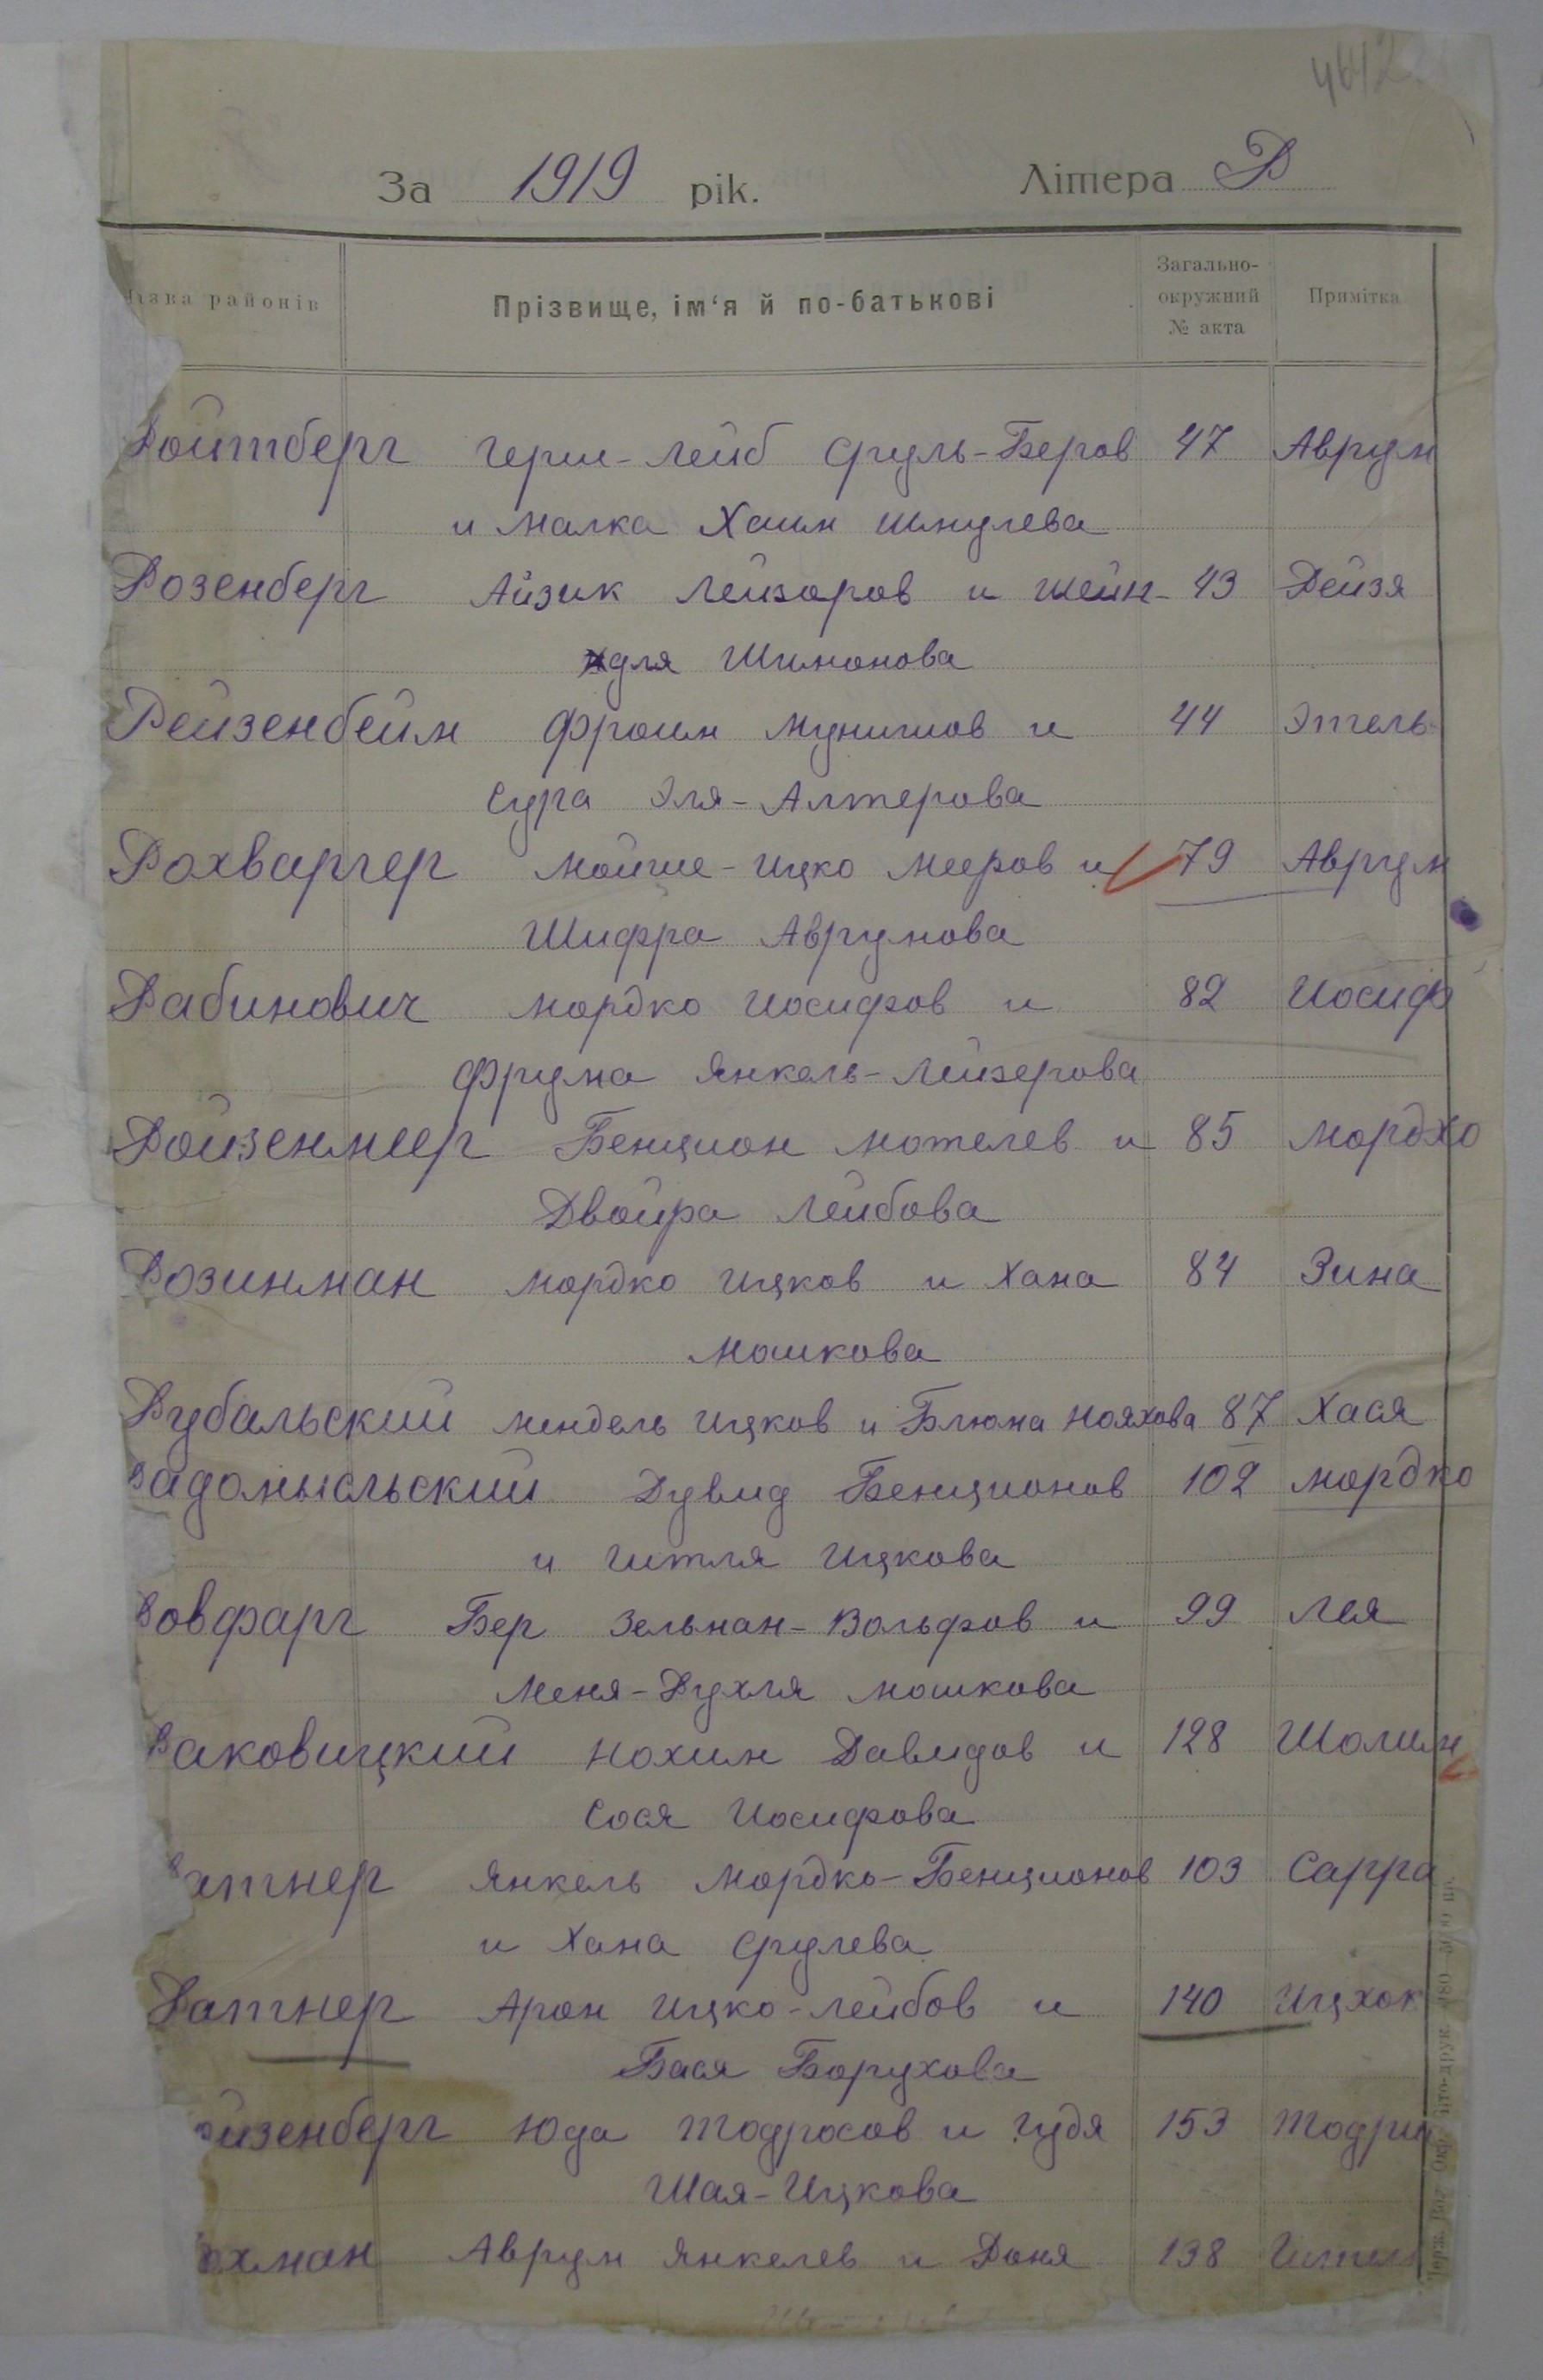 4642
За 1919 рік. Літера Р
Назва районів Прізвище, ім‘я й по-батькові Загально-окружний № акта Примітка
Ройтберг Герш-Лейб Сруль-Беров 47 Аврум
и Малка Хаим Шмулева
Розенберг Айзик Лейзоров и Шейн- 43 Рейзя
для Шимонова
Рейзенбейм Фроим Мунишов и 44 Этель
Сура Эля-Алтерова
Рохваргер Мойше-Ицко Мееров и 79 Аврум
Шифра Аврумова
Рабинович Мордко Иосифов и 82 Иосиф
Фрума Янкель-Лейзерова
Ройзенмеер Бенцион Мотелев и 85 Мордхо
Двойра Лейбова
Розинман Мордко Ицков и Хана 84 Зина
Мошкова
Рубальский Мендель Ицков и Блюма Нояхова 87 Хася
Радомысльский Дувид Бенционов 102 Мордко
и Гитля Ицкова
Ровфарг Бер Зельман-Вольфов и 99 Лея
Меня-Рухля Мошкова
Раковицкий Нохим Давидов и 128 Шолим
Сося Иосифова
Ратнер Янкель Мордко-Бенционов 103 Сарра
и Хана Срулева
Ратнер Арон Ицко-Лейбов и 140 Ицхок
Бася Борухова
ойзенберг Юда Тодросов и Гудя 153 Тодри
Шая-Ицкова
охман Аврум Янкелев и Доня 138 Гител